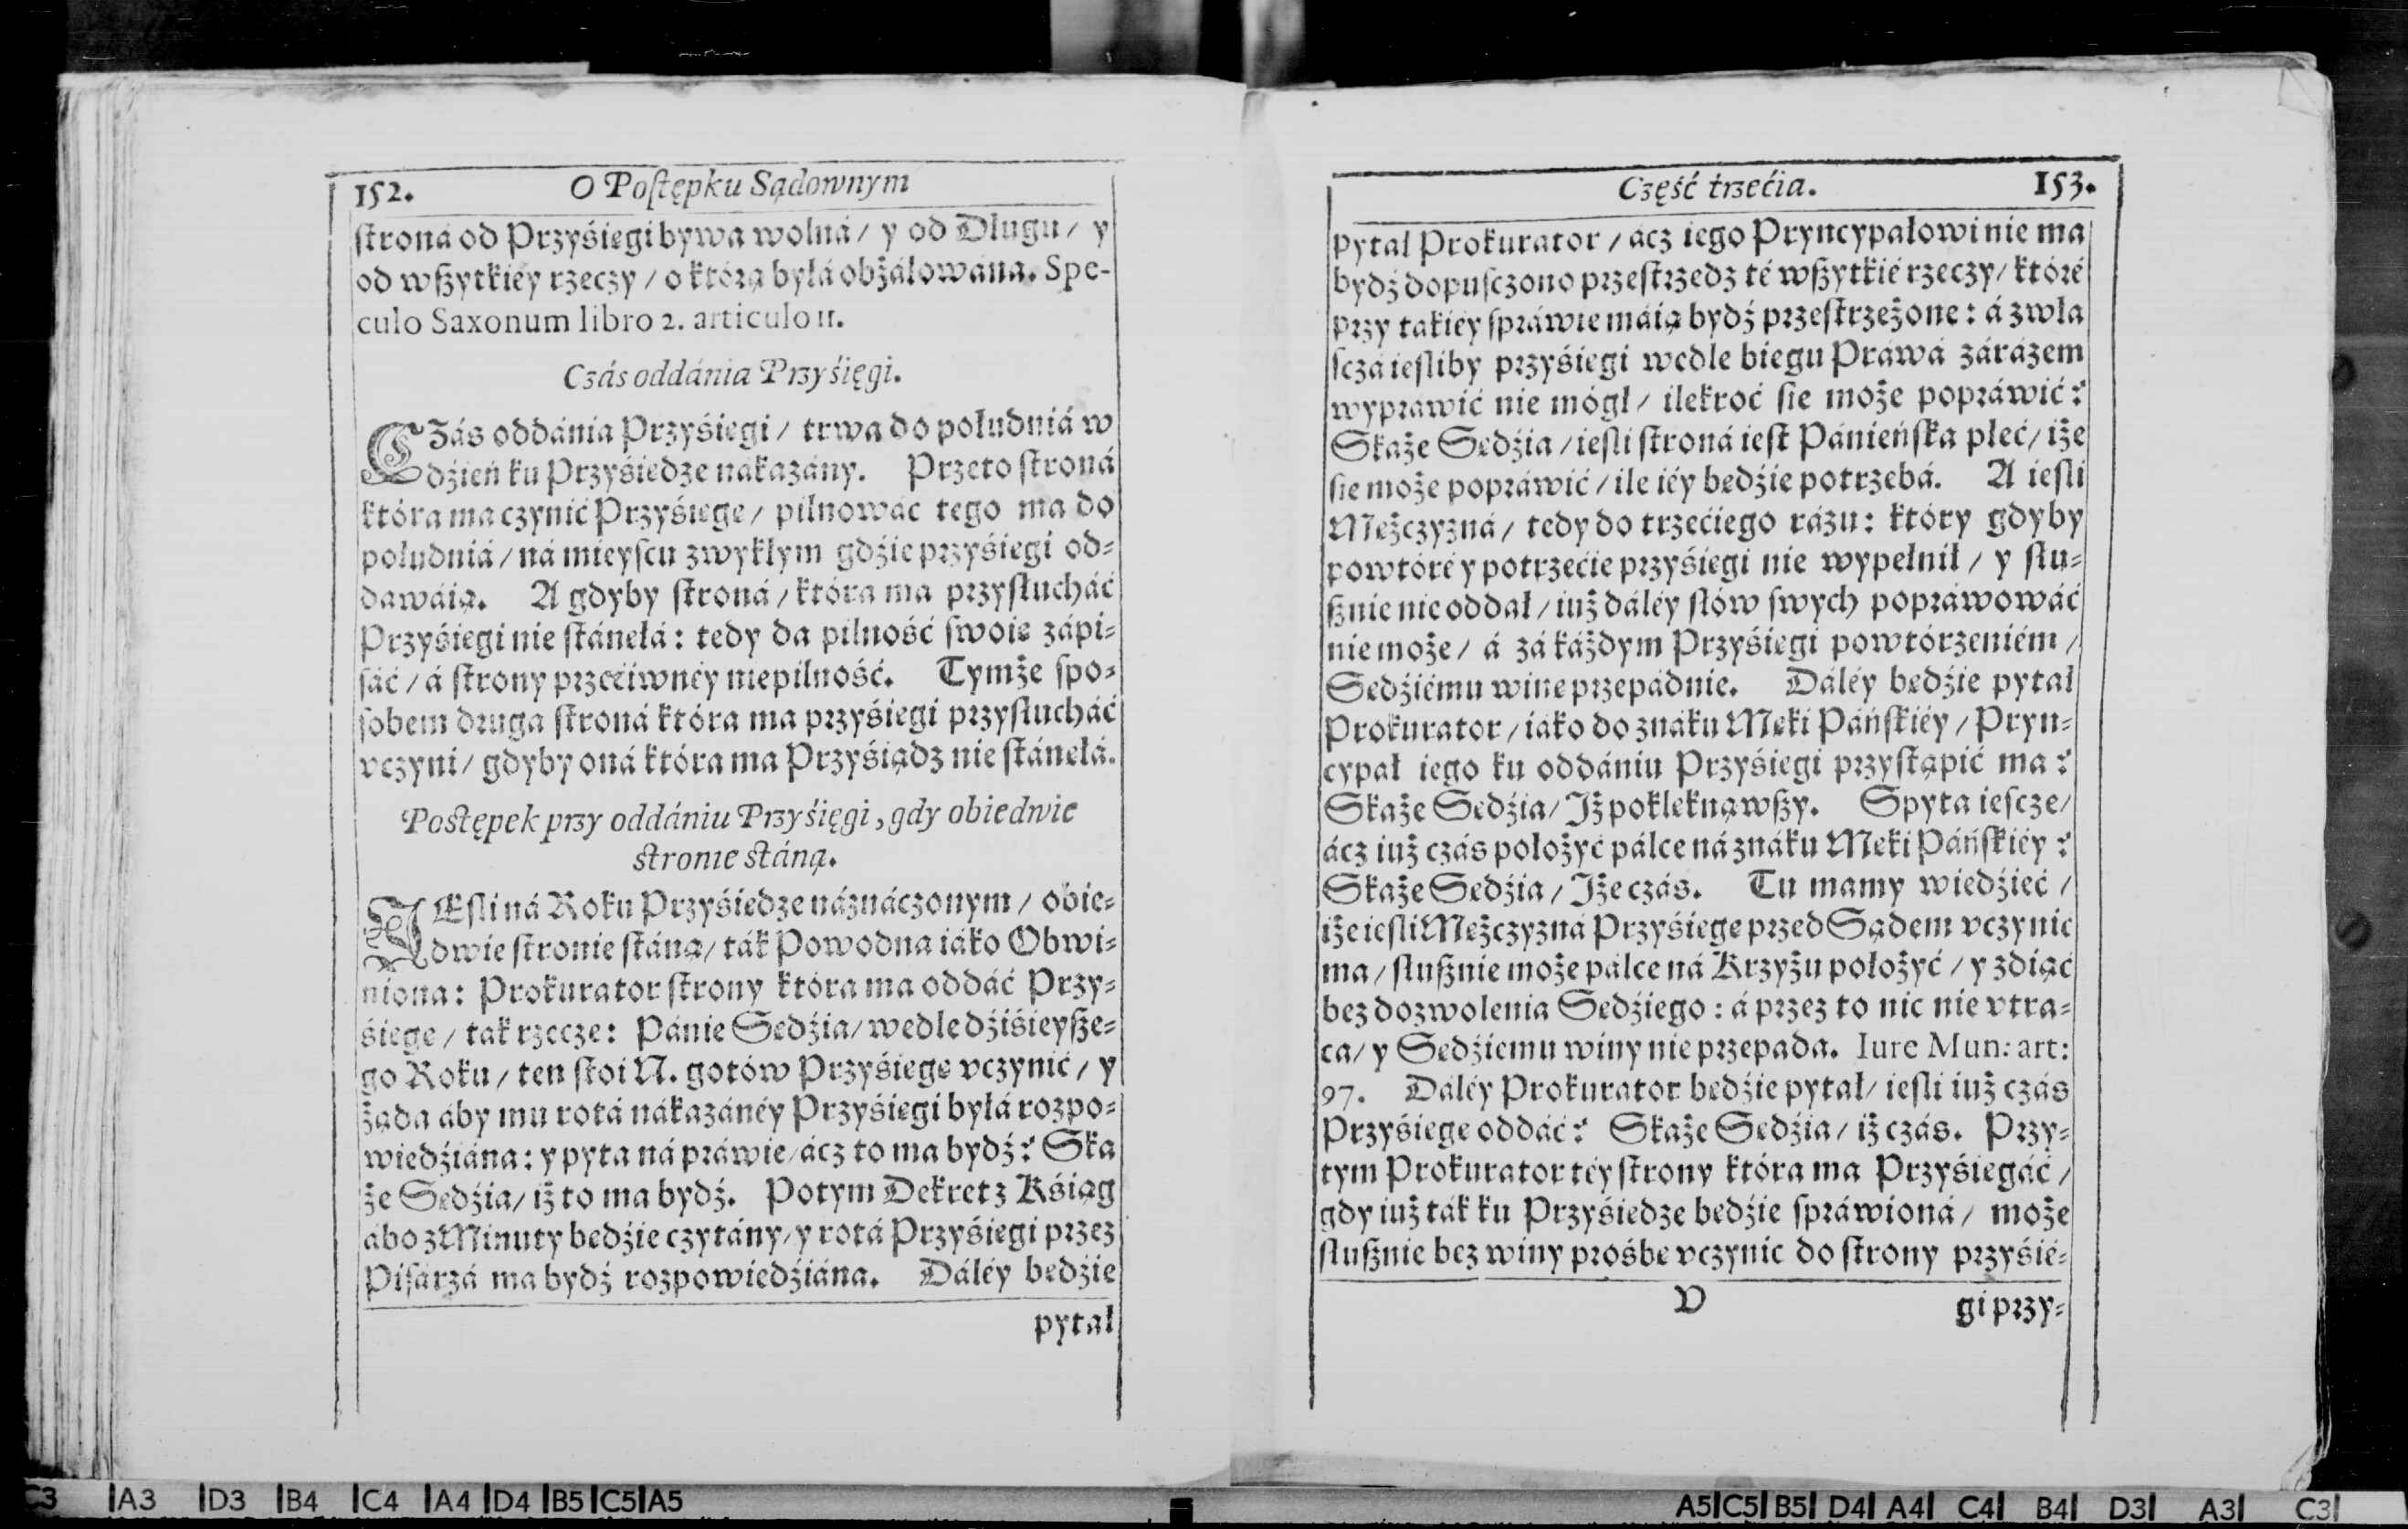 152. O Postępku Sądownym
stroná od Przyśięgi bywa wolná / y od Długu / y
od wszytkiéy rzeczy / o którą byłá obżáłowána. Spe-
culo Saxonum libro 2. articulo 11.
Czás oddánia Przyśięgi.
CZás oddánia Przyśięgi / trwa do południá w
dźień ku Przyśiędze nákazány. Przeto stroná
która ma czynić Przyśięgę / pilnowáć tego ma do
południá / ná mieyscu zwykłym gdźie przyśięgi od-
dawáią. A gdyby stroná / która ma przysłucháć
Przyśięgi nie stánęłá: tedy da pilność swoię zápi-
sáć / á strony przećiwnéy niepilność. Tymże spo-
sobem druga stroná która ma przyśięgi przysłucháć
vczyni / gdyby oná która ma Przyśiądz nie stánęłá.
Postępek przy oddániu Przyśięgi, gdy obiedwie
stronie stáną.
IEsli ná Roku Przyśiędze náznáczonym / obie-
dwie stronie stáną / ták Powodna iáko Obwi-
niona: Prokurator strony która ma oddáć Przy-
śięgę / tak rzecze: Pánie Sędźia / wedle dźiśieysze-
go Roku / ten stoi N. gotów Przyśięgę vczynić / y
żąda áby mu rotá nákazánéy Przyśięgi byłá rozpo-
wiedźiána: y pyta ná práwie / ácz to ma bydź? Ska
że Sędźia / iż to ma bydź. Potym Dekret z Kśiąg
ábo z Minuty będźie czytány / y rotá Przyśięgi przez
Pisárzá ma bydź rozpowiedźiána. Dáléy będźie
pytał
Część trzećia. 153.
pytał Prokurator / ácz iego Pryncypałowi nie ma
bydź dopusczono przestrzedz té wszytkié rzeczy / któré
przy takiéy spráwie máią bydź przestrzeżone: á zwła
sczá iesliby przyśięgi wedle biegu Práwá zárázem
wyprawić nie mógł / ilekroć się może popráwić?
Skaże Sędźia / iesli stroná iest Pánieńska płeć / iże
się może popráwić / ile iéy będźie potrzebá. A iesli
Mężczyzná / tedy do trzećiego rázu: który gdyby
powtóré y potrzećie przyśięgi nie wypełnił / y słu-
sznie nie oddał / iuż dáléy słów swych popráwowáć
nie może / á zá káżdym Przyśięgi powtórzeniém /
Sędźiému winę przepádnie. Dáléy będźie pytał
Prokurator / iáko do znáku Męki Páńskiéy / Pryn-
cypał iego ku oddániu Przyśięgi przystąpić ma?
Skaże Sędźia / Iż poklęknąwszy. Spyta iescze /
ácz iuż czás położyć pálce ná znáku Męki Páńskiéy?
Skaże Sędźia / Iże czás. Tu mamy wiedźieć /
iże iesli Mężczyzná Przyśięgę przed Sądem vczynić
ma / słusznie może pálce ná Krzyżu położyć / y zdiąć
bez dozwolenia Sędźiego: á przez to nic nie vtra-
ca / y Sędźiemu winy nie przepada. Iure Mun: art:
97. Dáléy Prokurator będźie pytał / iesli iuż czás
Przyśięgę oddáć? Skaże Sędźia / iż czás. Przy-
tym Prokurator téy strony która ma Przyśięgáć /
gdy iuż ták ku Przyśiędze będźie spráwioná / może
słusznie bez winy prośbę vczynić do strony przyśię-
V gi przy-
C3 A3 D3 B4 C4 A4 D4 B5 C5 A5
A5 C5 B5 D4 A4 C4 B4 D3 A3 C3